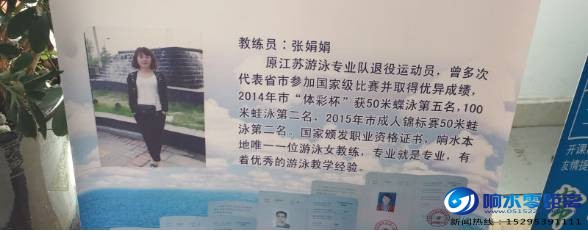 教练员：张娟娟
原江苏游泳专业队退役运动员，曾多次
代表省市参加国家级比赛并取得优异成绩，
2014年市“体彩杯”获50米蝶泳第五名，100
米蛙泳第二名，2015年市成人锦标赛50米蛙
泳第二名。国家颁发职业资格证书，响水本
地唯一一位游泳女教练，专业就是专业，有
着优秀的游泳教学经验。
开课
友情提
响水零距离
新闻热线：15295391111